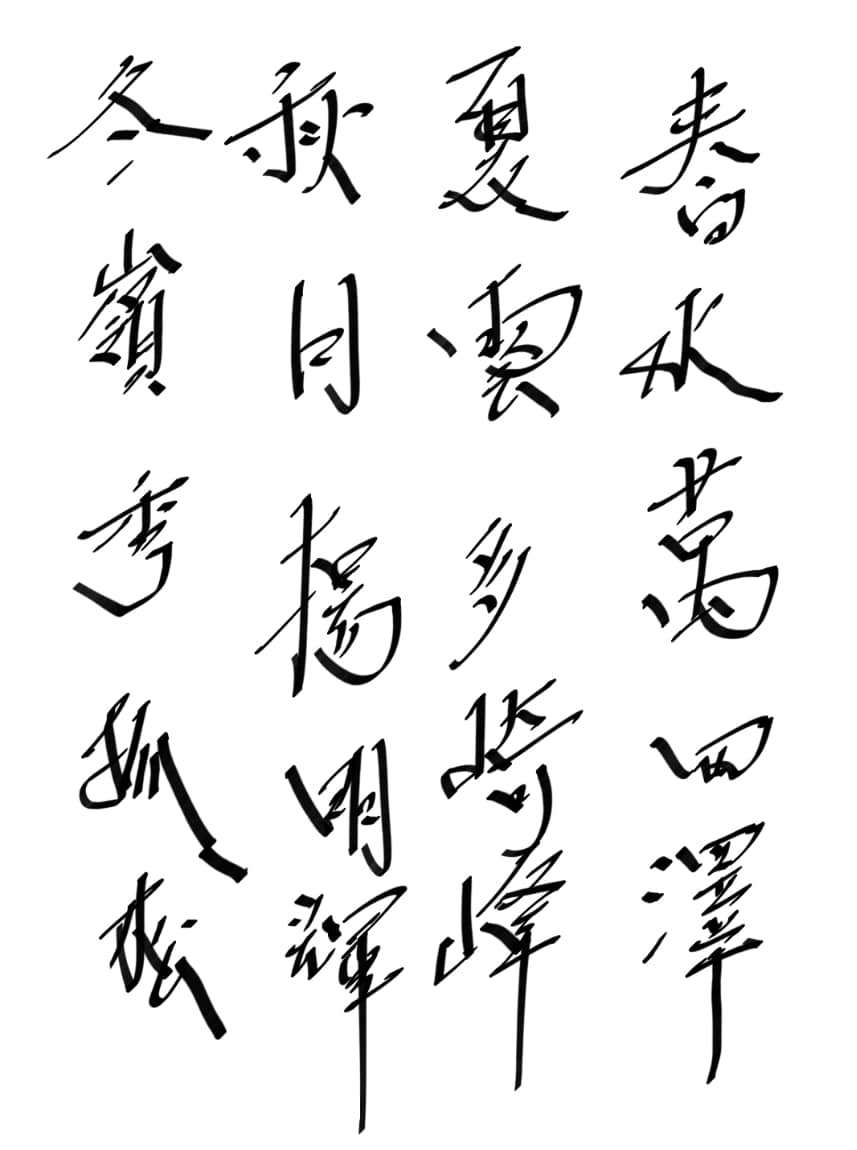 春水萬四澤
夏雲多崎峰
秋月揚明輝
冬嶺秀孤